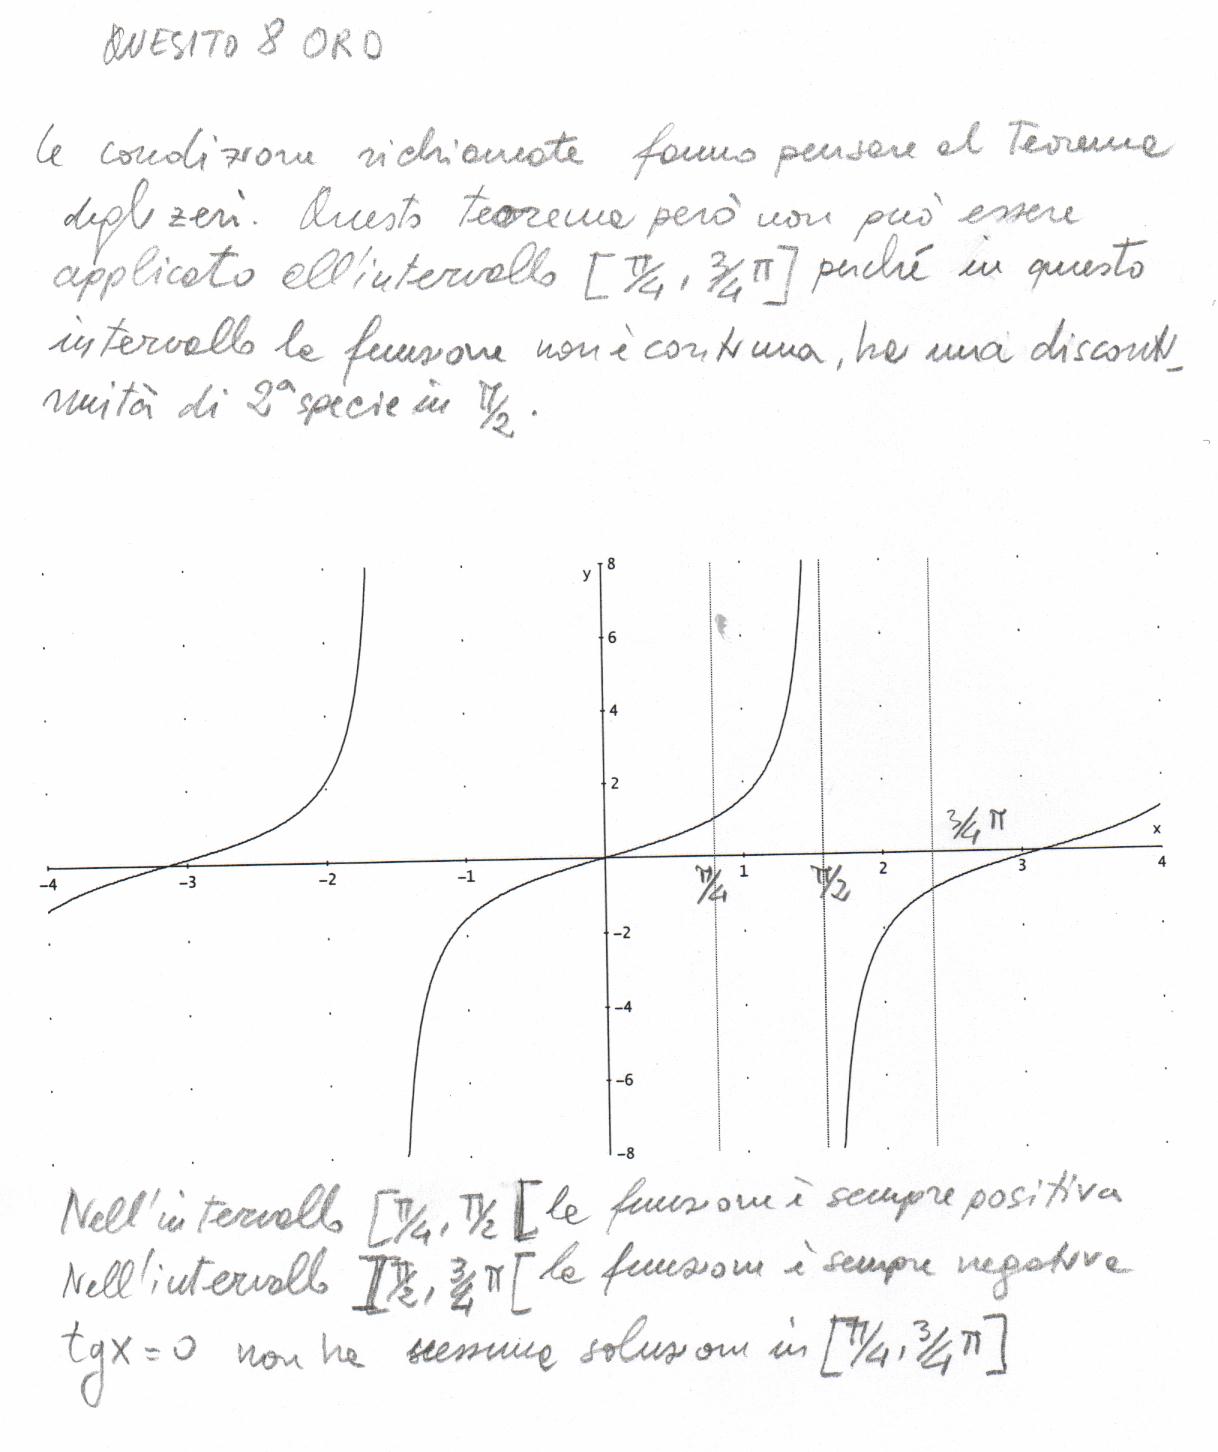 QUESITO 8 ORD
Le condizioni richiamate fanno pensare al Teorema
degli zeri. Questo teorema però non può essere
applicato all'intervallo [π/4, 3/4 π] perché in questo
intervallo la funzione non è continua, ha una discont_
nuità di 2ª specie in π/2.
y 8
6
4
2
3/4 π
x
-4 -3 -2 -1 π/4 1 π/2 2 3 4
-2
-4
-6
-8
Nell'intervallo [π/4, π/2[ la funzione è sempre positiva
Nell'intervallo ]π/2, 3/4 π[ la funzione è sempre negativa
tgx=0 non ha nessuna soluzioni in [π/4, 3/4 π]